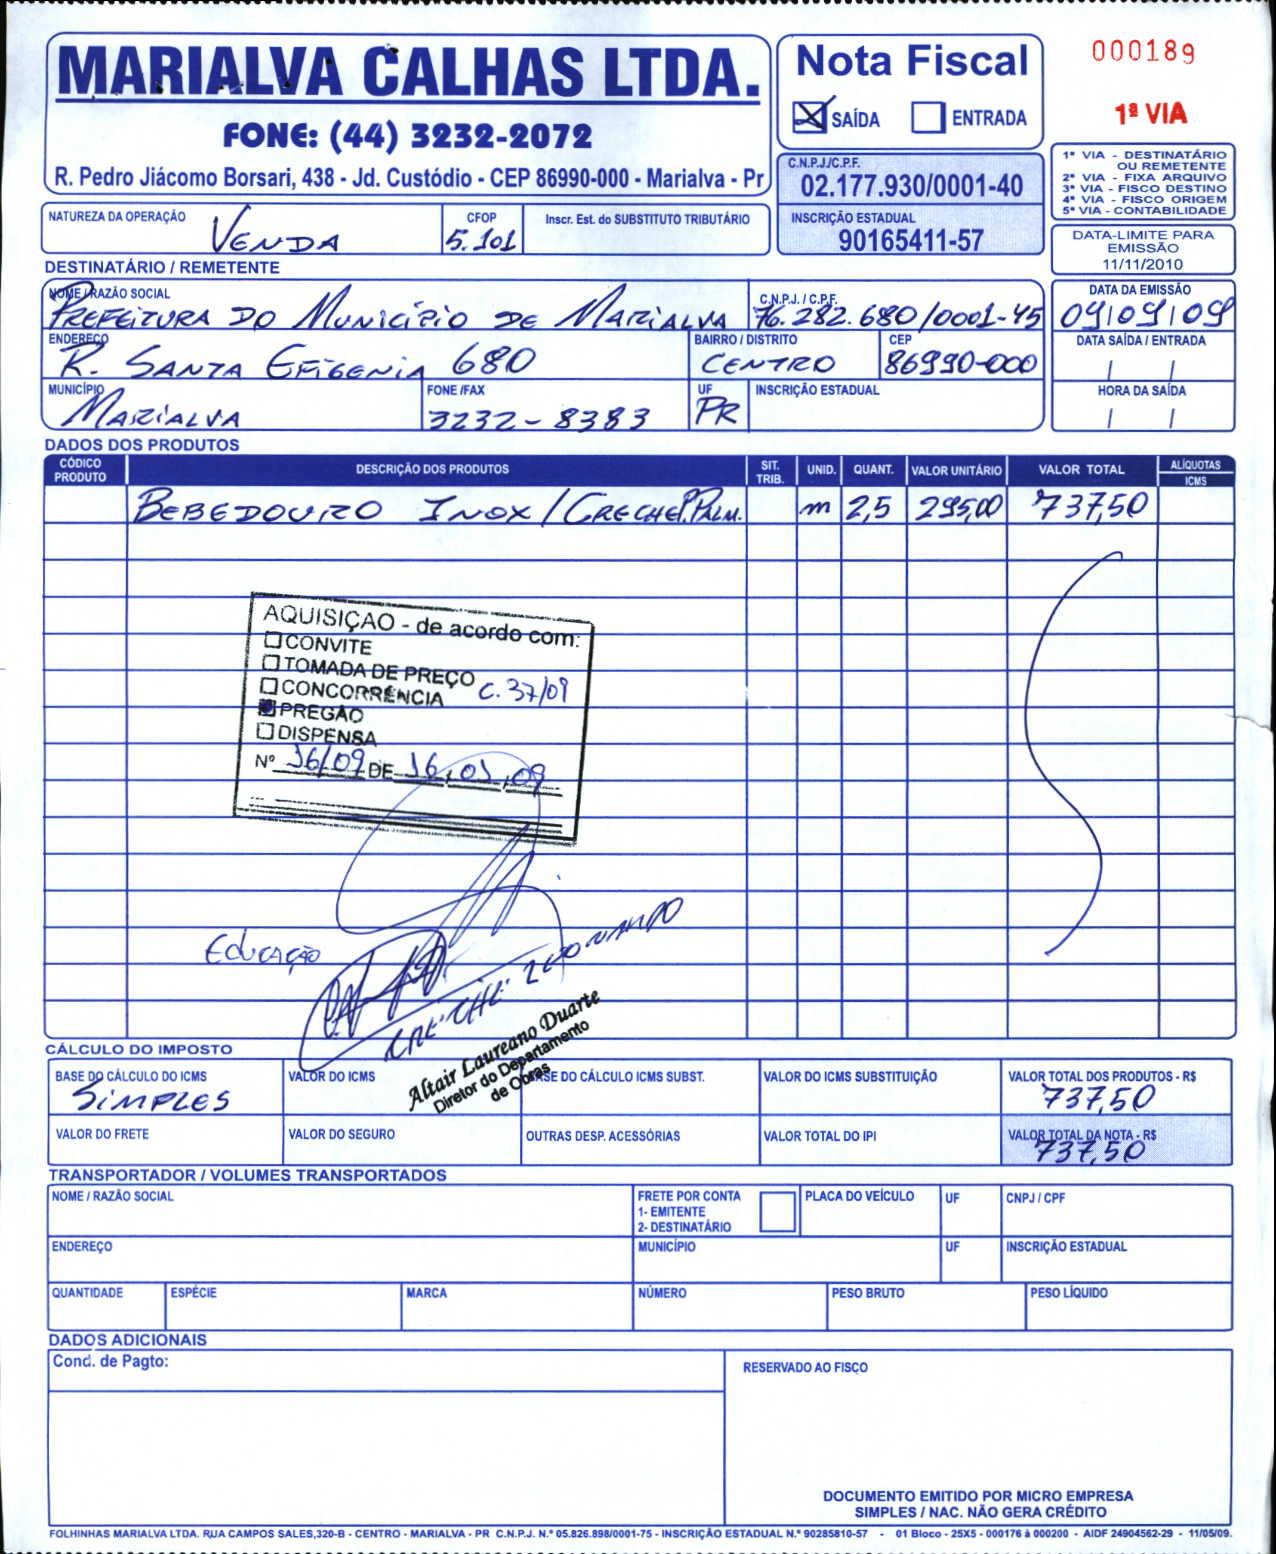 MARIALVA CALHAS LTDA.
FONE: (44) 3232-2072
R. Pedro Jiácomo Borsari, 438 - Jd. Custódio - CEP 86990-000 - Marialva - Pr
Nota Fiscal
SAÍDA ENTRADA
000189
1ª VIA
C.N.P.J./C.P.F.
02.177.930/0001-40
INSCRIÇÃO ESTADUAL
90165411-57
1ª VIA - DESTINATÁRIO
OU REMETENTE
2ª VIA - FIXA ARQUIVO
3ª VIA - FISCO DESTINO
4ª VIA - FISCO ORIGEM
5ª VIA - CONTABILIDADE
DATA-LIMITE PARA
EMISSÃO
11/11/2010
NATUREZA DA OPERAÇÃO CFOP Inscr. Est. do SUBSTITUTO TRIBUTÁRIO
VENDA 5.101
DESTINATÁRIO / REMETENTE
NOME / RAZÃO SOCIAL C.N.P.J. / C.P.F. DATA DA EMISSÃO
PREFEITURA DO MUNICÍPIO DE MARIALVA 76.282.680/0001-45 09/09/09
ENDEREÇO BAIRRO / DISTRITO CEP DATA SAÍDA / ENTRADA
R. SANTA EFIGENIA 680 CENTRO 86990-000 / /
MUNICÍPIO FONE /FAX UF INSCRIÇÃO ESTADUAL HORA DA SAÍDA
MARIALVA 3232-8383 PR / /
DADOS DOS PRODUTOS
CÓDICO PRODUTO DESCRIÇÃO DOS PRODUTOS SIT. TRIB. UNID. QUANT. VALOR UNITÁRIO VALOR TOTAL ALÍQUOTAS ICMS
BEBEDOURO INOX / CRECHE P. PALM. m 2,5 295,00 737,50
AQUISIÇAO - de acordo com:
CONVITE
TOMADA DE PREÇO
CONCORRÊNCIA C. 37/09
PREGÃO
DISPENSA
Nº 16/09 DE 16, 01, 09
EDUCAÇÃO
CRECHE
Altair Laureano Duarte
Diretor do Departamento
de Obras
CÁLCULO DO IMPOSTO
BASE DO CÁLCULO DO ICMS VALOR DO ICMS BASE DO CÁLCULO ICMS SUBST. VALOR DO ICMS SUBSTITUIÇÃO VALOR TOTAL DOS PRODUTOS - R$
SIMPLES 737,50
VALOR DO FRETE VALOR DO SEGURO OUTRAS DESP. ACESSÓRIAS VALOR TOTAL DO IPI VALOR TOTAL DA NOTA - R$
737,50
TRANSPORTADOR / VOLUMES TRANSPORTADOS
NOME / RAZÃO SOCIAL FRETE POR CONTA PLACA DO VEÍCULO UF CNPJ / CPF
1- EMITENTE
2- DESTINATÁRIO
ENDEREÇO MUNICÍPIO UF INSCRIÇÃO ESTADUAL
QUANTIDADE ESPÉCIE MARCA NÚMERO PESO BRUTO PESO LÍQUIDO
DADOS ADICIONAIS
Cond. de Pagto: RESERVADO AO FISCO
DOCUMENTO EMITIDO POR MICRO EMPRESA
SIMPLES / NAC. NÃO GERA CRÉDITO
FOLHINHAS MARIALVA LTDA. RUA CAMPOS SALES,320-B - CENTRO - MARIALVA - PR C.N.P.J. N.º 05.826.898/0001-75 - INSCRIÇÃO ESTADUAL N.º 90285810-57 - 01 Bloco - 25X5 - 000176 à 000200 - AIDF 24904562-29 - 11/05/09.